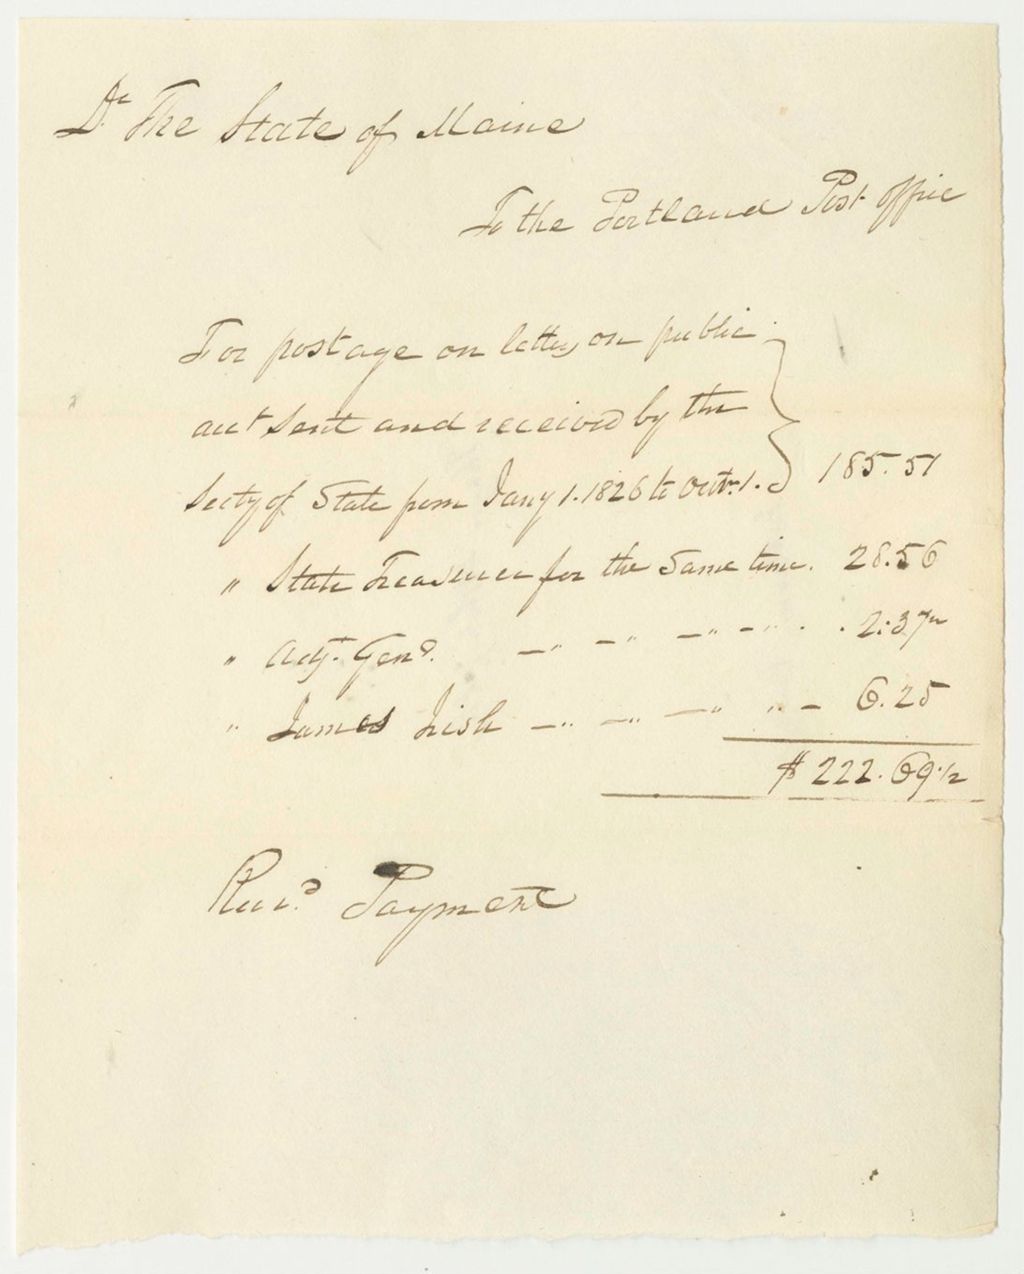 Dr The State of Maine
To the Portland Post Office
For postage on letters on public
acct sent and received by the
Secty of State from Jany 1. 1826 to Octr. 1. 185.51
" State Treasurer for the Same time. 28.56
" Adjt. Genl. — " — " — " — " . . 2.37½
" James Irish — " — " — " " — 6.25
$ 222.69 1/2
Recd. Payment